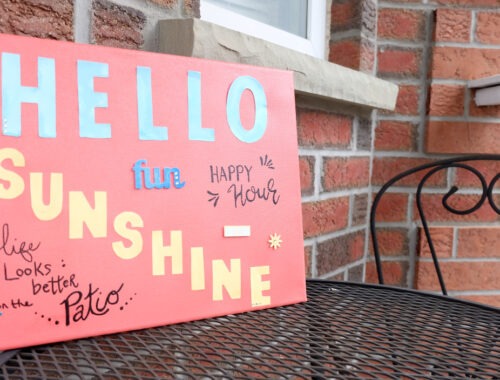 HELLO
fun
HAPPY
Hour
SUNSHINE
life
Looks
better
on the
Patio